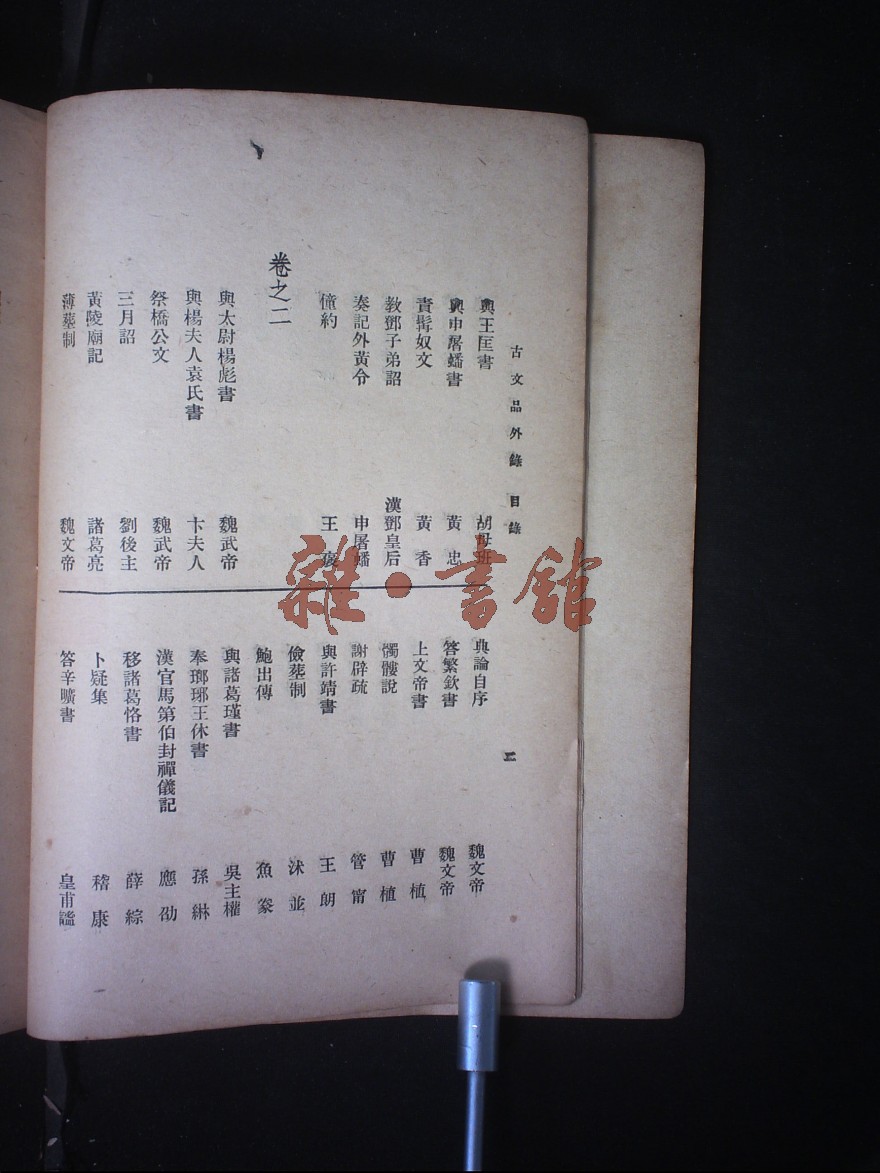 古文品外錄 目錄
二
與王匡書 胡母班
與申屠蟠書 黃忠
責髯奴文 黃香
敎鄧子弟詔 漢鄧皇后
奏記外黃令 申屠蟠
僮約 王褒
卷之二
與太尉楊彪書 魏武帝
與楊夫人袁氏書 卞夫人
祭橋公文 魏武帝
三月詔 劉後主
黃陵廟記 諸葛亮
薄葬制 魏文帝
典論自序 魏文帝
答繁欽書 魏文帝
上文帝書 曹植
髑髏說 曹植
謝辟疏 管甯
與許靖書 王朗
儉葬制 沐並
鮑出傳 魚豢
與諸葛瑾書 吳主權
奉瑯琊王休書 孫綝
漢官馬第伯封禪儀記 應劭
移諸葛恪書 薛綜
卜疑集 嵇康
答辛曠書 皇甫謐
雜·書館